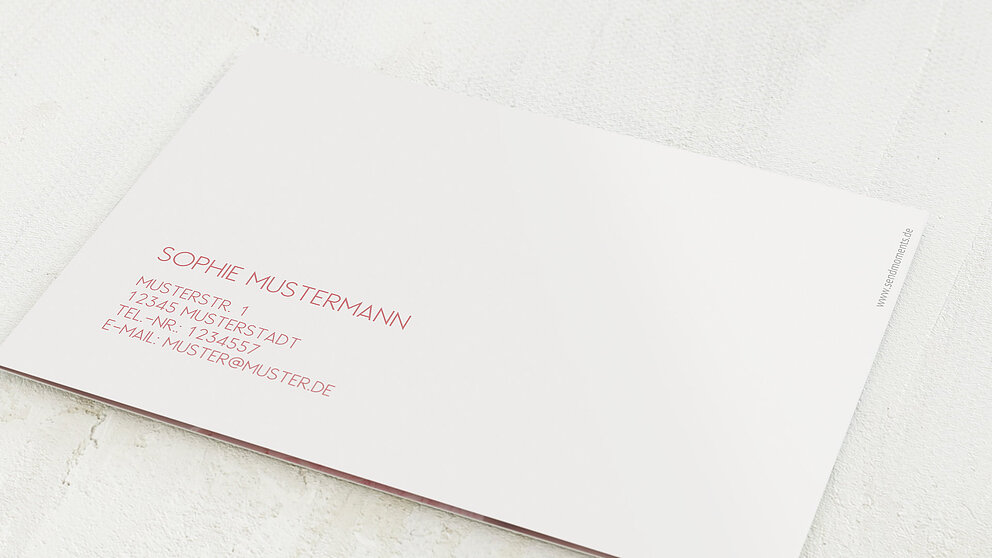 SOPHIE MUSTERMANN
MUSTERSTR. 1
12345 MUSTERSTADT
TEL.-NR.: 1234557
E-MAIL: MUSTER@MUSTER.DE
www.sendmoments.de